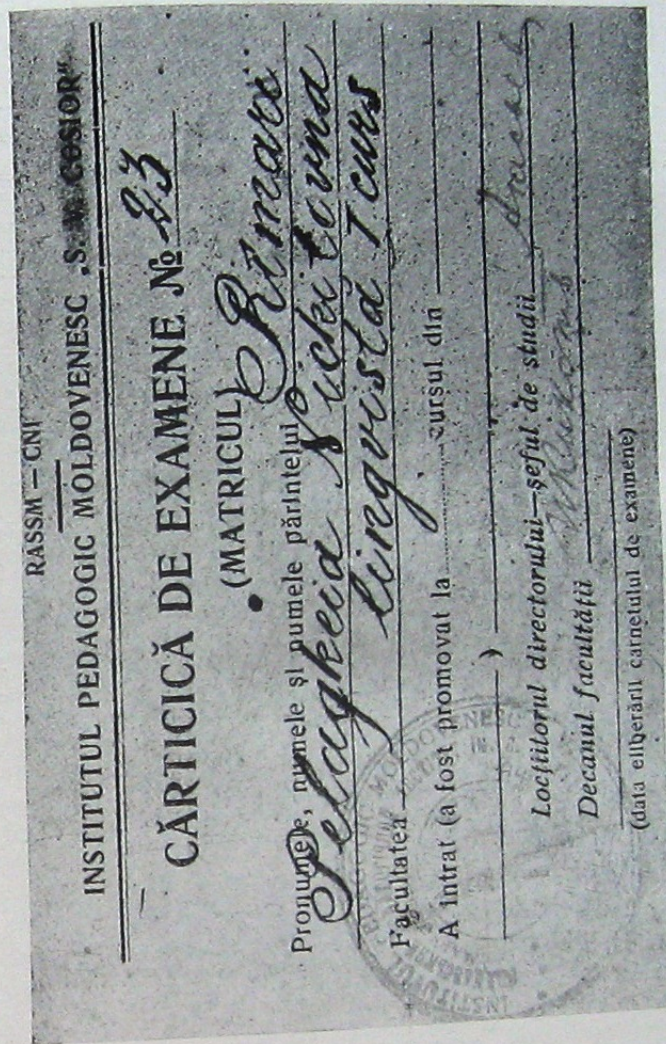 RASSM — CNI
INSTITUTUL PEDAGOGIC MOLDOVENESC „S. V. COSIOR"
CĂRTICICĂ DE EXAMENE № 23
(MATRICUL)
Pronumele, numele și numele părintelui Rîmari
Pelagheia Nichitovna
Facultatea lingvistă I curs
A intrat (a fost promovat la cursul din
)
Locțiitorul directorului—șeful de studii
Decanul facultății
(data eliberării carnetului de examene)
INSTITUTUL PEDAGOGIC MOLDOVENESC